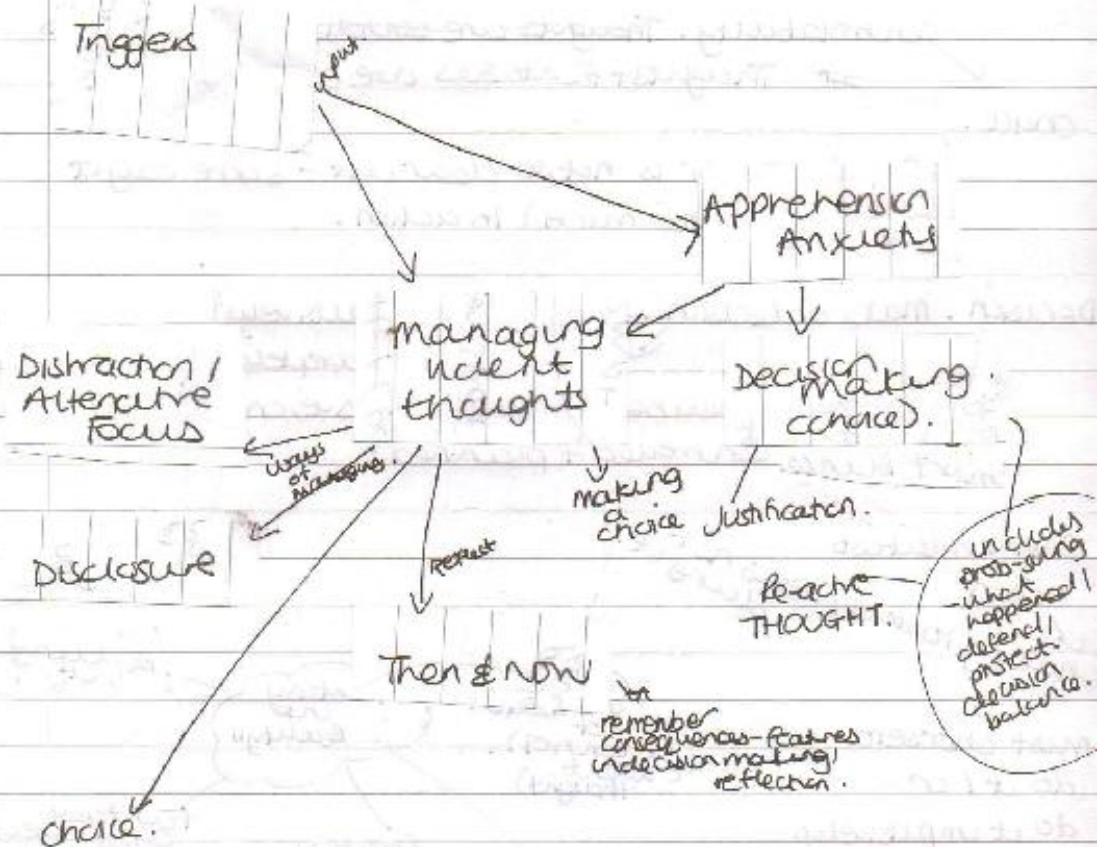 Triggers
input
Apprehension
Anxiety
managing
violent
thoughts
Decision
making
(choice).
Distraction /
Alternative
Focus
ways
of
managing
making
a
choice
Justification.
Disclosure
Re-active
THOUGHT.
includes
prob-solving
- what
happened /
defend /
protect.
decision
balance.
Then & now
remember
consequences - features
in decision making /
reflection.
choice.